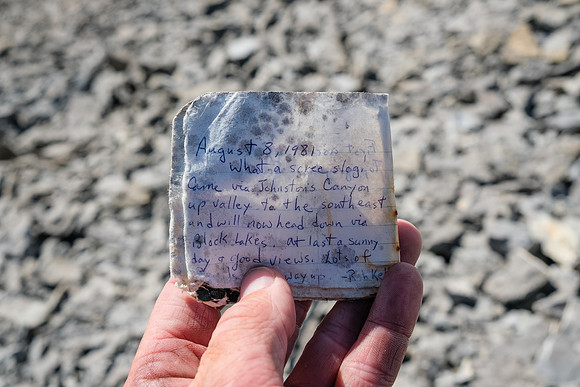 August 8, 1981
What a scree slog
Came via Johnstons Canyon
up valley to the southeast
and will now head down via
Block lakes. At last a sunny
day & good views. Lots of
way up. -Rob